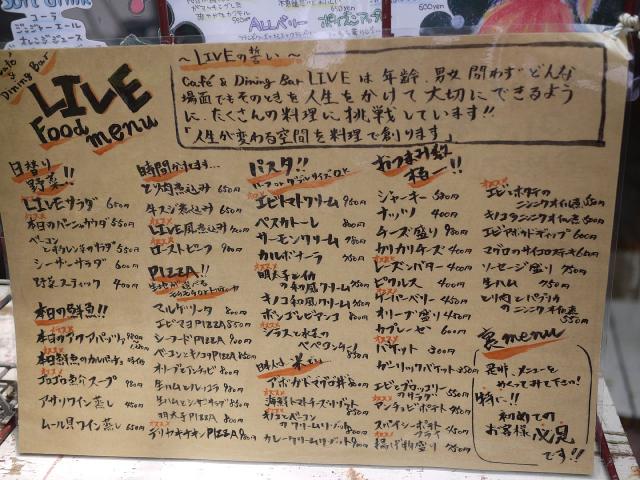 コーラ
ジンジャーエール
オレンジジュース
ALLバリー
600yen
Dining Bar
LIVE
Food menu
〜LIVEの誓い〜
Café & Dining Bar LIVE は 年齢、男女 問わず どんな
場面でもそのときを 人生を かけて 大切に できるよう
に、たくさんの料理に 挑戦しています!!
「人生が変わる空間を料理で創ります」
日替り
野菜!!
LIVEサラダ 650円
本日のバーニャカウダ 550円
ベーコン
シーザーサラダ 600円
野菜スティック 400円
本日の鮮魚!!
本日のアクアパッツァ
本日鮮魚のカルパッチョ
ゴロゴロ魚介スープ 980円
アサリワイン蒸し 450円
ムール貝ワイン蒸し 650円
時間かけてます…
とり肉煮込み 650円
牛スジ煮込み 650円
LIVE風煮込み
ローストビーフ 900円
PIZZA!!
マルゲリータ 800円
エビマヨPIZZA 850円
シーフードPIZZA 900円
ベーコンとキノコPIZZA 850円
明太子PIZZA 800円
テリヤキチキンPIZZA 900円
パスタ!!
エビトマトクリーム 950円
ペスカトーレ 800円
サーモンクリーム 980円
カルボナーラ 750円
明太子とイカ
の和風クリーム 950円
キノコ和風クリーム 950円
ボンゴレビアンコ 800円
シラスと水菜の
ペペロンチーノ 850円
アボカドマグロ丼 850円
海鮮トマトチーズリゾット 850円
キノコとベーコン
のクリームリゾット 800円
カレークリームリゾット 900円
おつまみ数
推一!!
ジャーキー 580円
ナッツ 450円
チーズ盛り 980円
カリカリチーズ 400円
レーズンバター 400円
ピクルス 400円
ケイパーベリー 450円
オリーブ盛り 450円
カプレーゼ 600円
バケット 300円
ガーリックバケット 350円
エビとブロッコリー
のサラダ 550円
アンチョビポテト 450円
スパイシーポテト
フライ 450円
揚げ物盛り 750円
エビとホタテの
ニンニクオイル煮 550円
キノコニンニクオイル煮 550円
エビアボカドディップ 600円
マグロのサイコロステーキ 650円
ソーセージ盛り 750円
生ハム 750円
とり肉とパプリカ
のニンニクオイル煮
550円
裏menu
是非、メニューを
めくってみて下さい!
特に!!
初めての
お客様 必見
です!!